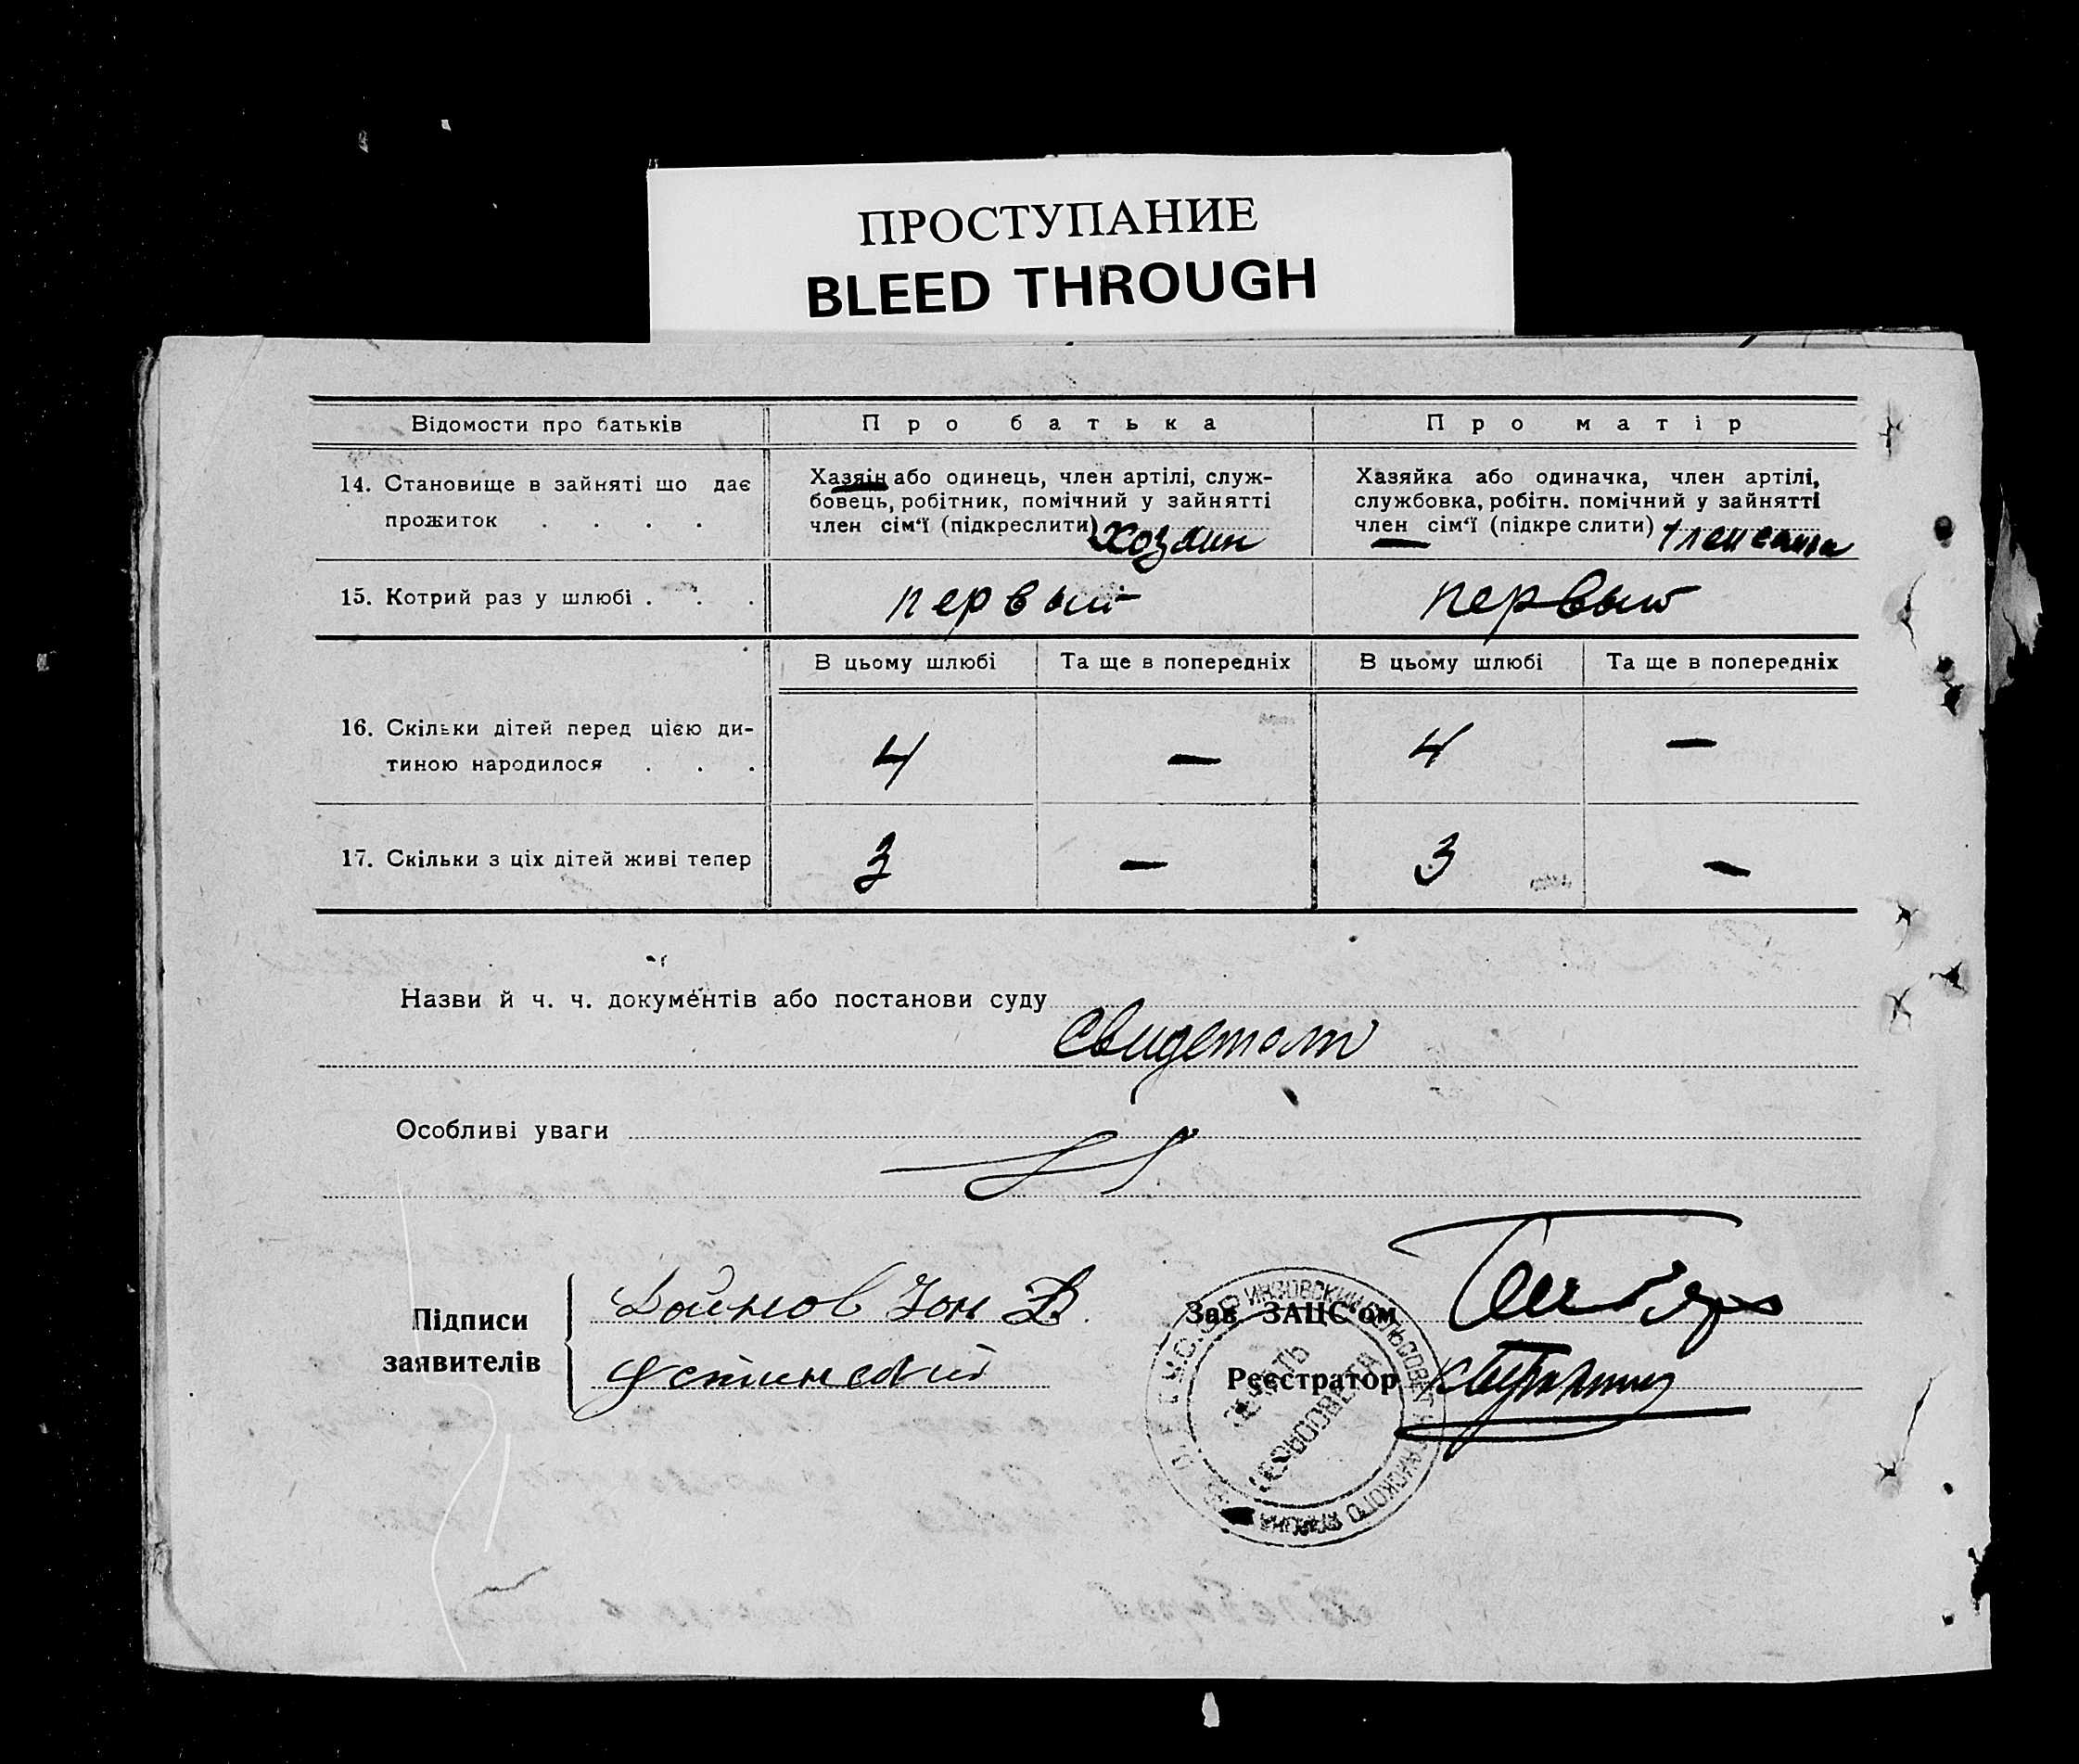 ПРОСТУПАНИЕ
BLEED THROUGH
Відомости про батьків
Про батька
Про матір
14. Становище в зайняті що дає
прожиток . . . .
Хазяін або одинець, член артілі, служ-
бовець, робітник, помічний у зайнятті
член сім‘ї (підкреслити) Хозяин
Хазяйка або одиначка, член артілі,
службовка, робітн. помічний у зайнятті
член сім‘ї (підкре слити) член семьи
15. Котрий раз у шлюбі . . .
первый
первый
В цьому шлюбі
Та ще в попередніх
В цьому шлюбі
Та ще в попередніх
16. Скільки дітей перед цією ди-
тиною народилося . . .
4
—
4
—
17. Скільки з ціх дітей живі тепер
3
—
3
—
Назви й ч. ч. документів або постанови суду
Особливі уваги
Підписи
заявителів
Войнов Зон В.
Зав ЗАЦС‘ом
Реєстратор
ИНЗОВСКИЙ СЕЛЬСОВЕТ
РАЙОНА